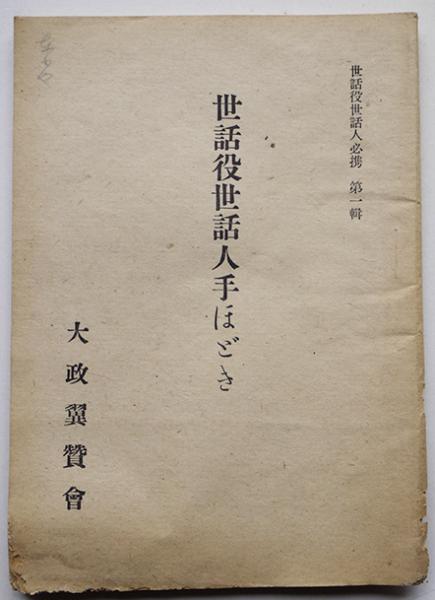 世話役世話人必携 第一輯
世話役世話人手ほどき
大政翼贊會